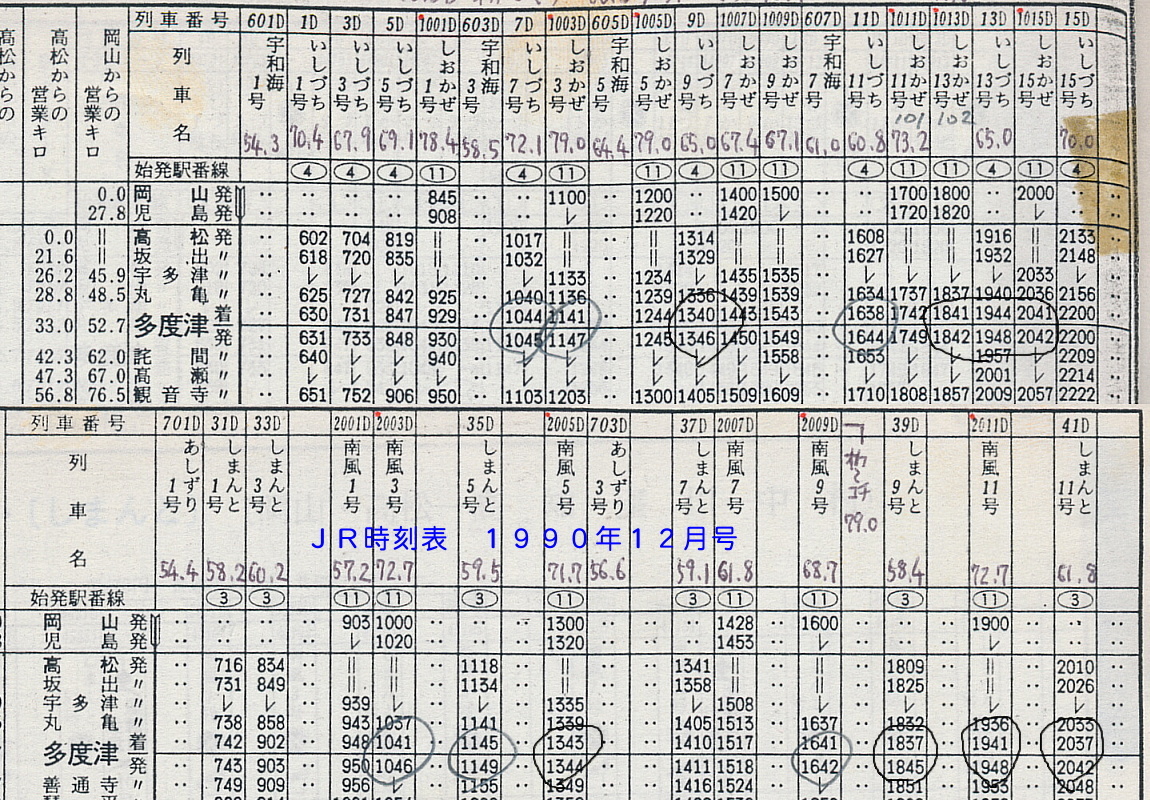 列車番号 601D 1D 3D 5D 1001D 603D 7D 1003D 605D 1005D 9D 1007D 1009D 607D 11D 1011D 1013D 13D 1015D 15D
高松からの
高松からの営業キロ
岡山からの営業キロ
列車名 宇和海1号 いしづち1号 いしづち3号 いしづち5号 しおかぜ1号 宇和海3号 いしづち7号 しおかぜ3号 宇和海5号 しおかぜ5号 いしづち9号 しおかぜ7号 しおかぜ9号 宇和海7号 いしづち11号 しおかぜ11号 しおかぜ13号 いしづち13号 しおかぜ15号 いしづち15号
101 102
54.3 70.4 67.9 69.1 78.4 58.5 72.1 79.0 64.4 79.0 65.0 67.4 67.1 61.0 60.8 73.2 65.0 70.0
始発駅番線 ④ ④ ④ ⑪ ④ ⑪ ⑪ ④ ⑪ ⑪ ④ ⑪ ⑪ ④ ⑪ ④
0.0 岡山発 ‥ ‥ ‥ ‥ 845 ‥ ‥ 1100 ‥ 1200 ‥ 1400 1500 ‥ ‥ 1700 1800 ‥ 2000 ‥ ‥
27.8 児島発 ‥ ‥ ‥ ‥ 908 ‥ ‥ レ ‥ 1220 ‥ 1420 レ ‥ ‥ 1720 1820 ‥ レ ‥ ‥
0.0 || 高松発 ‥ 602 704 819 || ‥ 1017 || ‥ || 1314 || || ‥ 1608 || || 1916 || 2133 ‥
21.6 || 坂出〃 ‥ 618 720 835 || ‥ 1032 || ‥ || 1329 || || ‥ 1627 || || 1932 || 2148 ‥
26.2 45.9 宇多津〃 ‥ レ レ レ レ ‥ レ 1133 ‥ 1234 レ 1435 1535 ‥ レ レ レ レ 2033 レ ‥
28.8 48.5 丸亀〃 ‥ 625 727 842 925 ‥ 1040 1136 ‥ 1239 1336 1439 1539 ‥ 1634 1737 1837 1940 2036 2156 ‥
33.0 52.7 多度津 着 ‥ 630 731 847 929 ‥ 1044 1141 ‥ 1244 1340 1443 1543 ‥ 1638 1742 1841 1944 2041 2200 ‥
発 ‥ 631 733 848 930 ‥ 1045 1147 ‥ 1245 1346 1450 1549 ‥ 1644 1749 1842 1948 2042 2200 ‥
42.3 62.0 詫間〃 ‥ 640 レ レ 940 ‥ レ レ ‥ レ レ レ 1558 ‥ 1653 レ レ 1957 レ 2209 ‥
47.3 67.0 高瀬〃 ‥ レ レ レ レ ‥ レ レ ‥ レ レ レ レ ‥ レ レ レ 2001 レ 2214 ‥
56.8 76.5 観音寺〃 ‥ 651 752 906 950 ‥ 1103 1203 ‥ 1300 1405 1509 1609 ‥ 1710 1808 1857 2009 2057 2222 ‥
列車番号 701D 31D 33D 2001D 2003D 35D 2005D 703D 37D 2007D 2009D 39D 2011D 41D
列車名 あしずり1号 しまんと1号 しまんと3号 南風1号 南風3号 しまんと5号 南風5号 あしずり3号 しまんと7号 南風7号 南風9号 しまんと9号 南風11号 しまんと11号
79.0
JR時刻表 1990年12月号
54.4 58.2 60.2 57.2 72.7 59.5 71.7 56.6 59.1 61.8 68.7 58.4 72.7 61.8
始発駅番線 ③ ③ ⑪ ⑪ ③ ⑪ ③ ⑪ ⑪ ③ ⑪ ③
岡山発 ‥ ‥ ‥ ‥ 903 1000 ‥ ‥ ‥ 1300 ‥ ‥ ‥ 1428 ‥ 1600 ‥ ‥ ‥ 1900 ‥ ‥ ‥
児島発 ‥ ‥ ‥ ‥ レ 1020 ‥ ‥ ‥ 1320 ‥ ‥ ‥ 1453 ‥ レ ‥ ‥ ‥ レ ‥ ‥ ‥
高松発 ‥ 716 834 ‥ || || ‥ 1118 ‥ || ‥ ‥ 1341 || ‥ || ‥ 1809 ‥ || ‥ 2010 ‥
坂出〃 ‥ 731 849 ‥ || || ‥ 1134 ‥ || ‥ ‥ 1358 || ‥ || ‥ 1825 ‥ || ‥ 2026 ‥
宇多津〃 ‥ レ レ ‥ 939 レ ‥ レ ‥ 1335 ‥ ‥ レ 1508 ‥ レ ‥ レ ‥ レ ‥ レ ‥
丸亀〃 ‥ 738 858 ‥ 943 1037 ‥ 1141 ‥ 1339 ‥ ‥ 1405 1513 ‥ 1637 ‥ 1832 ‥ 1936 ‥ 2033 ‥
多度津 着 ‥ 742 902 ‥ 948 1041 ‥ 1145 ‥ 1343 ‥ ‥ 1410 1517 ‥ 1641 ‥ 1837 ‥ 1941 ‥ 2037 ‥
発 ‥ 743 903 ‥ 950 1046 ‥ 1149 ‥ 1344 ‥ ‥ 1411 1518 ‥ 1642 ‥ 1845 ‥ 1948 ‥ 2042 ‥
善通寺〃 ‥ 749 909 ‥ 956 レ ‥ 1155 ‥ 1349 ‥ ‥ 1416 1524 ‥ レ ‥ 1851 ‥ 1953 ‥ 2048 ‥